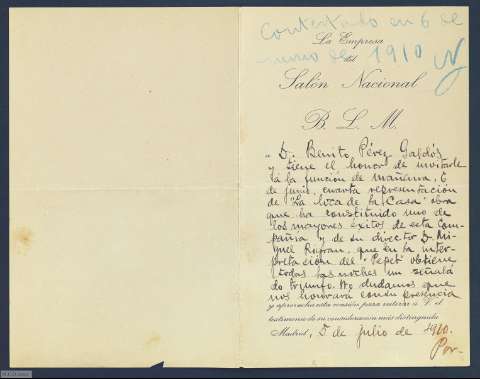 Contestado en 6 de
junio de 1910
La Empresa
del
Salón Nacional
B. L. M.
a D. Benito Pérez Galdós
y tiene el honor de invitarle
a la función de mañana, 6
de junio, cuarta representación
de "La loca de la Casa" obra
que ha constituido uno de
los mayores éxitos de esta Com-
pañia y de su director D. Mi-
guel, que en la inter-
pretación del "Pepet" obtiene
todas las noches un señala
do triunfo. No dudamos que
nos honrará con su presencia
y aprovecha esta ocasión para reiterar a V. el
testimonio de su consideración más distinguida
Madrid, 5 de julio de 1910.
Por.